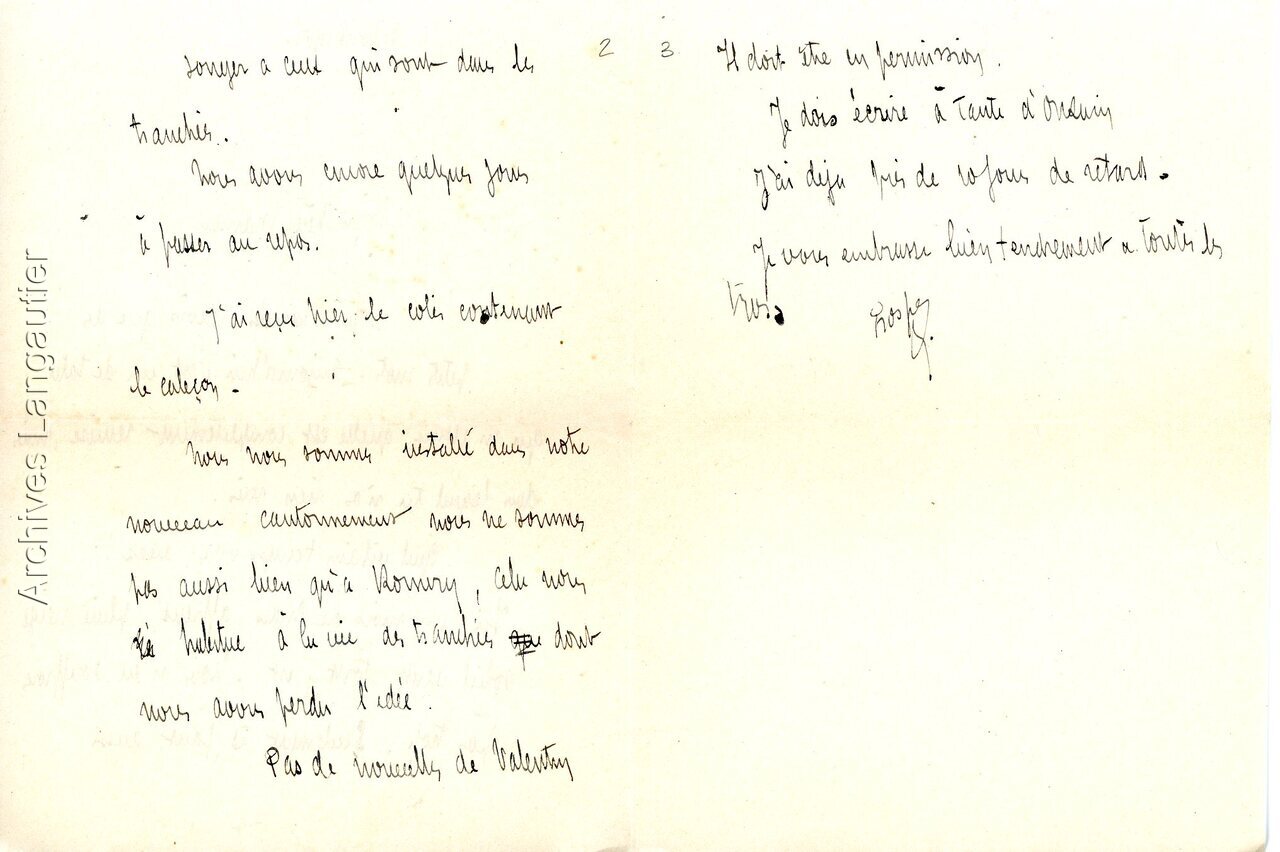 2
songer a ceux qui sont dans les
tranchés.
Nous avons encore quelques jours
à passer au repos.
J'ai reçu hier le colis contenant
le caleçon.
Nous nous sommes installé dans notre
nouveau cantonnement nous ne sommes
pas aussi bien qu'a Romery, cela nous
habitue à la vie des tranchés dont
nous avons perdu l'idée.
Pas de nouvelles de Valentin
3
Il doit être en permission.
Je dois écrire à Tante d'Onzain
J'ai deja près de 10 jours de retard.
Je vous embrasse bien tendrement a toutes les
trois
Archives Langautier